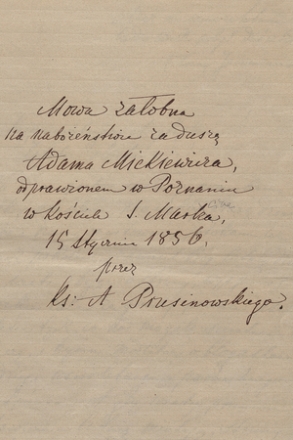 Mowa żałobna
na nabożeństwie za duszę
Adama Mickiewicza,
odprawionem w Poznaniu
w kościele S. Marka,
15 Stycznia 1856.
przez
ks: A Prusinowskiego.